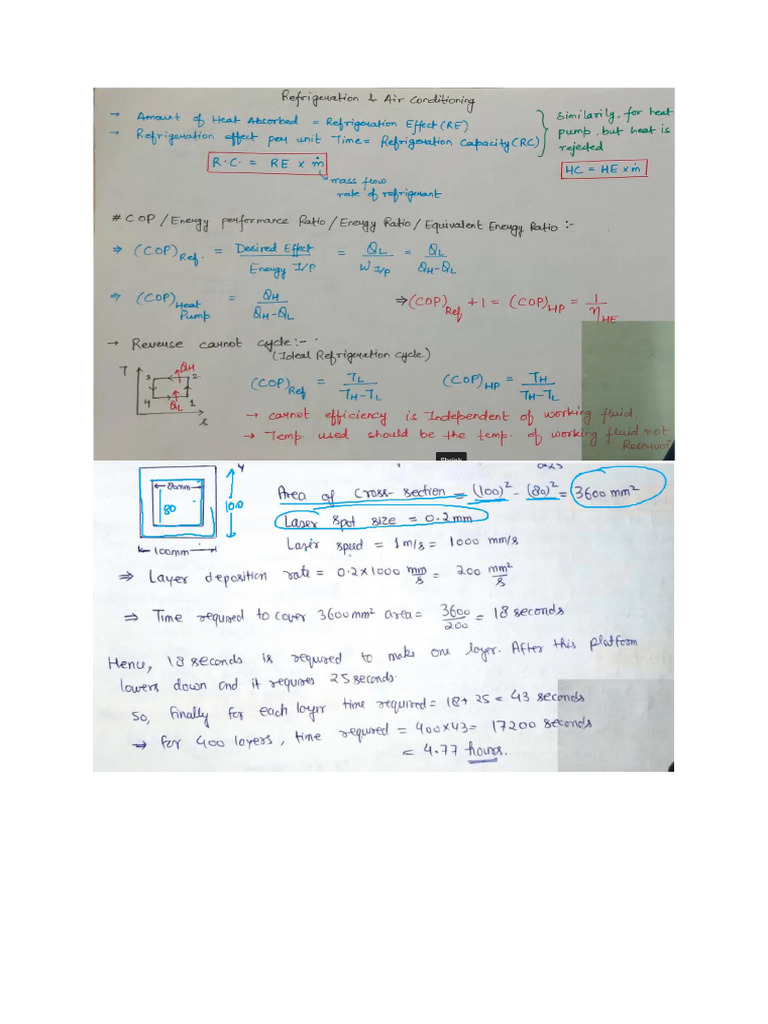 Refrigeration & Air Conditioning
→ Amount of Heat Absorbed = Refrigeration Effect (RE)
→ Refrigeration effect per unit Time = Refrigeration Capacity (RC)
Similarily, for heat
pump, but heat is
rejected
R.C. = RE × ṁ
HC = HE × ṁ
mass flow
rate of refrigerant
# COP / Energy performance Ratio / Energy Ratio / Equivalent Energy Ratio :-
⇒ (COP)Ref. = Desired Effect / Energy I/P = QL / W I/P = QL / QH-QL
⇒ (COP)Heat Pump = QH / QH-QL ⇒ (COP)Ref + 1 = (COP)HP = 1 / ηHE
→ Reverse carnot cycle :-
(Ideal Refrigeration cycle)
T 3 QH 2 4 QL 1 s
(COP)Ref = TL / TH-TL (COP)HP = TH / TH-TL
→ carnot efficiency is Independent of working fluid.
→ Temp used should be the temp. of working fluid not
Reservoi
Shrink
80mm
80
100
100mm
Area of cross-section = (100)² - (80)² = 3600 mm²
Laser spot size = 0.2mm
Lasir speed = 1m/s = 1000 mm/s
⇒ Layer deposition rate = 0.2×1000 mm/s = 200 mm²/s
⇒ Time required to cover 3600mm² area = 3600/200 = 18 seconds
Hence, 18 seconds is required to make one layer. After this platform
lowers down and it requires 25 seconds.
So, finally for each layer time required = 18+25 = 43 seconds
→ for 400 layers, time required = 400×43 = 17200 seconds
= 4.77 hours.